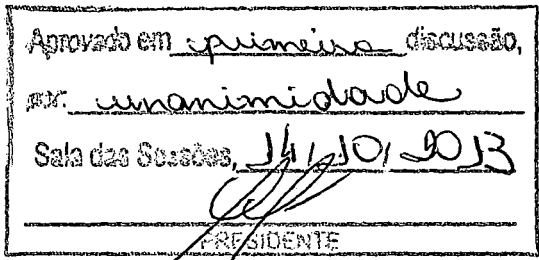 Aprovado em primeira discussão,
por unanimidade
Sala das Sessões, 14/10/2013
PRESIDENTE